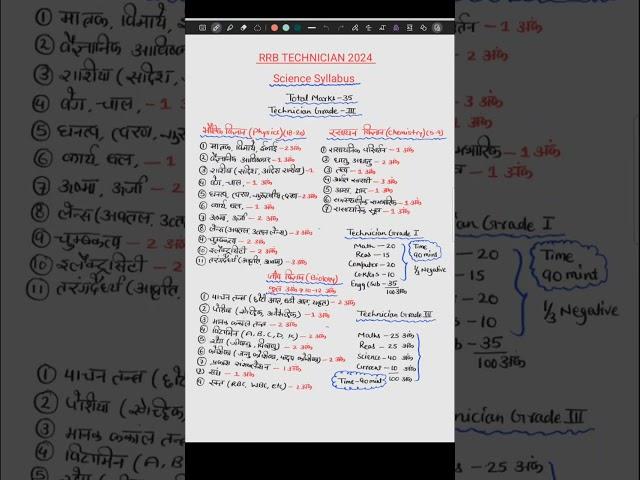 RRB TECHNICIAN 2024
Science Syllabus
Total Marks - 35
Technician Grade - III
भौतिक विज्ञान (Physics) (18-20)
① मात्रक, विमायें, ईकाई - 2 अंक
② वैज्ञानिक आविष्कार - 1 अंक
③ राशीयां (सदिश, अदिश राशीयां) - 1
④ वेग, चाल, - 1 अंक
⑤ घनत्व, (त्वरण, गुरुत्वीय त्वरण - 2 अंक
⑥ कार्य, बल, - 1 अंक
⑦ ऊष्मा, ऊर्जा - 2 अंक
⑧ लेन्स (अवतल, उत्तल लेन्स) - 3 अंक
⑨ चुम्बकत्व - 2 अंक
⑩ इलैक्ट्रीसिटी - 2 अंक
⑪ तरंगदैर्ध्य (आवृत्ति, ) - 3 अंक
रसायन विज्ञान (Chemistry) (5-9)
① रासायनिक परिवर्तन - 1 अंक
② धातु, अधातु - 2 अंक
③ तत्व - 1 अंक
④ सारणी - 3 अंक
⑤ अम्ल, क्षार - 2 अंक
⑥ - 1 अंक
⑦ रासायनिक सूत्र - 1 अंक
Technician Grade I
Math - 20
Reas - 15
Computer - 20
GK/GS - 10
Engg (Sub - 35
100 अंक
Time
90 mint
1/3 Negative
जीव विज्ञान (Biology)
कुल अंक → 10-12 अंक
① पाचन तन्त्र (छोटी आंत, बड़ी आंत, ) - 2 अंक
② पेशियां (ऐच्छिक, अनैच्छिक) - 1 अंक
③ मानव कंकाल तन्त्र - 2 अंक
④ विटामिन (A, B, C, D, K) - 2 अंक
⑤ रोग (जीवाणु, विषाणु) - 2 अंक
⑥ कोशिका (जन्तु कोशिका, पादप कोशिका) - 2 अंक
⑦ प्रकाश संश्लेषण - 1 अंक
⑧ - 1 अंक
⑨ रक्त (RBC, WBC, Etc) - 2 अंक
Technician Grade III
Maths - 25 अंक
Reas - 25 अंक
Science - 40 अंक
Current - 10 अंक
100 अंक
Time - 90 mint